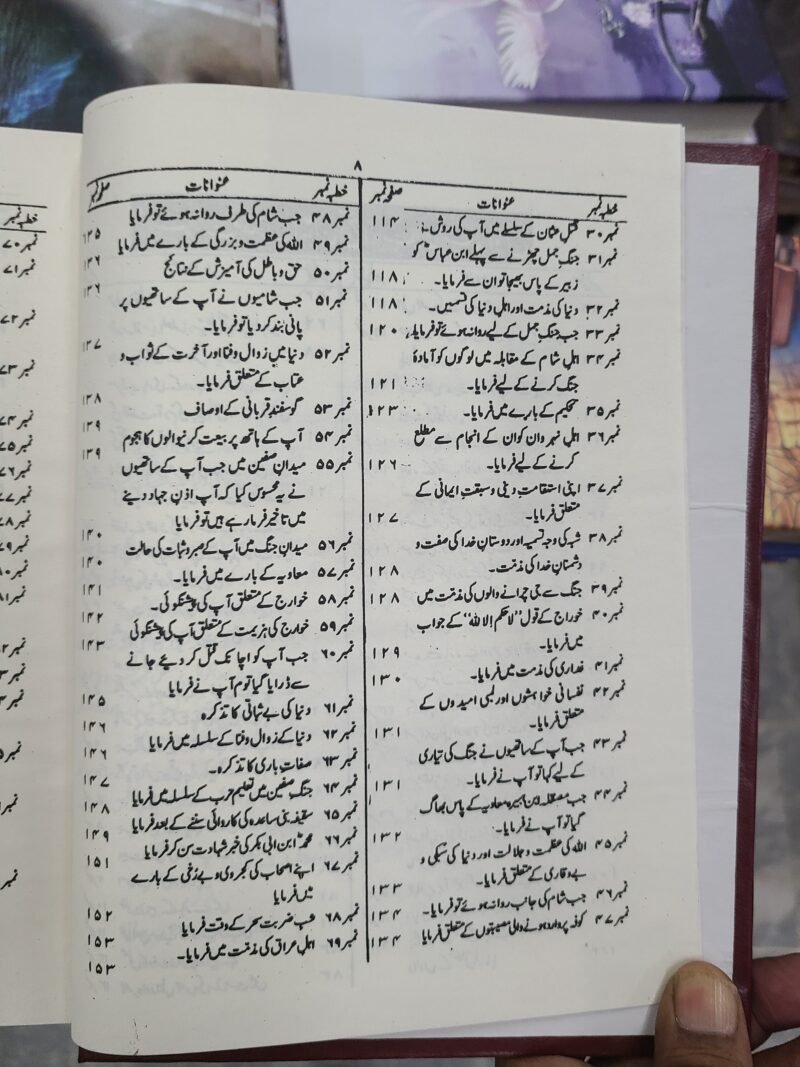 ۸
خطبہ نمبر عنوانات صفحہ نمبر
نمبر ۳۰ قتل عثمان کے سلسلے میں آپ کی روش۔ ۱۱۴
نمبر ۳۱ جنگ جمل چھڑنے سے پہلے ابن عباسؓ کو
زبیر کے پاس بھیجا تو ان سے فرمایا۔ ۱۱۸
نمبر ۳۲ دنیا کی مذمت اور اہل دنیا کی قسمیں۔ ۱۱۸
نمبر ۳۳ جب جنگ جمل کے لیے روانہ ہوئے تو فرمایا۔ ۱۲۰
نمبر ۳۴ اہل شام کے مقابلہ میں لوگوں کو آمادۂ
جنگ کرنے کے لیے فرمایا۔ ۱۲۱
نمبر ۳۵ تحکیم کے بارے میں فرمایا۔ ۱۲۳
نمبر ۳۶ اہل نہروان کو ان کے انجام سے مطلع
کرنے کے لیے فرمایا۔ ۱۲۶
نمبر ۳۷ اپنی استقامتِ دینی و سبقتِ ایمانی کے
متعلق فرمایا۔ ۱۲۷
نمبر ۳۸ شبہ کی وجہ تسمیہ اور دوستانِ خدا کی صفت و
دشمنانِ خدا کی مذمت۔ ۱۲۸
نمبر ۳۹ جنگ سے جی چرانے والوں کی مذمت میں ۱۲۸
نمبر ۴۰ خوارج کے قول ”لا حکم الا للہ“ کے جواب
میں فرمایا۔ ۱۲۹
نمبر ۴۱ غداری کی مذمت میں فرمایا۔ ۱۳۰
نمبر ۴۲ نفسانی خواہشوں اور لمبی امیدوں کے
متعلق فرمایا۔ ۱۳۱
نمبر ۴۳ جب آپ کے ساتھیوں نے جنگ کی تیاری
کے لیے کہا تو آپ نے فرمایا۔ ۱۳۱
نمبر ۴۴ جب مصقلہ ابن ہبیرہ معاویہ کے پاس بھاگ
گیا تو آپ نے فرمایا۔ ۱۳۲
نمبر ۴۵ اللہ کی عظمت و جلالت اور دنیا کی سبکی و
بے وقاری کے متعلق فرمایا۔ ۱۳۳
نمبر ۴۶ جب شام کی جانب روانہ ہوئے تو فرمایا۔ ۱۳۴
نمبر ۴۷ کوفہ پر وارد ہونے والی مصیبتوں کے متعلق فرمایا ۱۳۴
خطبہ نمبر عنوانات صفحہ نمبر
نمبر ۴۸ جب شام کی طرف روانہ ہوئے تو فرمایا ۱۳۵
نمبر ۴۹ اللہ کی عظمت و بزرگی کے بارے میں فرمایا ۱۳۶
نمبر ۵۰ حق و باطل کی آمیزش کے نتائج ۱۳۶
نمبر ۵۱ جب شامیوں نے آپ کے ساتھیوں پر
پانی بند کر دیا تو فرمایا۔ ۱۳۷
نمبر ۵۲ دنیا میں زوال و فنا اور آخرت کے ثواب و
عتاب کے متعلق فرمایا۔ ۱۳۸
نمبر ۵۳ گوسفندِ قربانی کے اوصاف ۱۳۹
نمبر ۵۴ آپ کے ہاتھ پر بیعت کرنیوالوں کا ہجوم ۱۳۹
نمبر ۵۵ میدانِ صفین میں جب آپ کے ساتھیوں
نے یہ محسوس کیا کہ آپ اذنِ جہاد دینے
میں تاخیر فرما رہے ہیں تو فرمایا ۱۴۰
نمبر ۵۶ میدانِ جنگ میں آپ کے صبر و ثبات کی حالت ۱۴۰
نمبر ۵۷ معاویہ کے بارے میں فرمایا۔ ۱۴۱
نمبر ۵۸ خوارج کے متعلق آپ کی پیشنگوئی۔ ۱۴۲
نمبر ۵۹ خوارج کی ہزیمت کے متعلق آپ کی پیشنگوئی ۱۴۳
نمبر ۶۰ جب آپ کو اچانک قتل کر دیئے جانے
سے ڈرایا گیا تو م آپ نے فرمایا ۱۴۵
نمبر ۶۱ دنیا کی بے ثباتی کا تذکرہ ۱۴۶
نمبر ۶۲ دنیا کے زوال و فنا کے سلسلہ میں فرمایا ۱۴۶
نمبر ۶۳ صفاتِ باری کا تذکرہ۔ ۱۴۷
نمبر ۶۴ جنگ صفین میں تعلیم حرب کے سلسلہ میں فرمایا ۱۴۸
نمبر ۶۵ سقیفہ بنی ساعدہ کی کاروائی سننے کے بعد فرمایا ۱۴۹
نمبر ۶۶ محمدؓ ابن ابی بکر کی خبر شہادت سن کر فرمایا ۱۵۱
نمبر ۶۷ اپنے اصحاب کی کجروی و بے رخی کے بارے
میں فرمایا ۱۵۲
نمبر ۶۸ شب ضربت سحر کے وقت فرمایا ۱۵۳
نمبر ۶۹ اہل عراق کی مذمت میں فرمایا۔ ۱۵۳
خطبہ نمبر
نمبر ۷۰
نمبر ۷۱
نمبر ۷۲
نمبر ۷۳